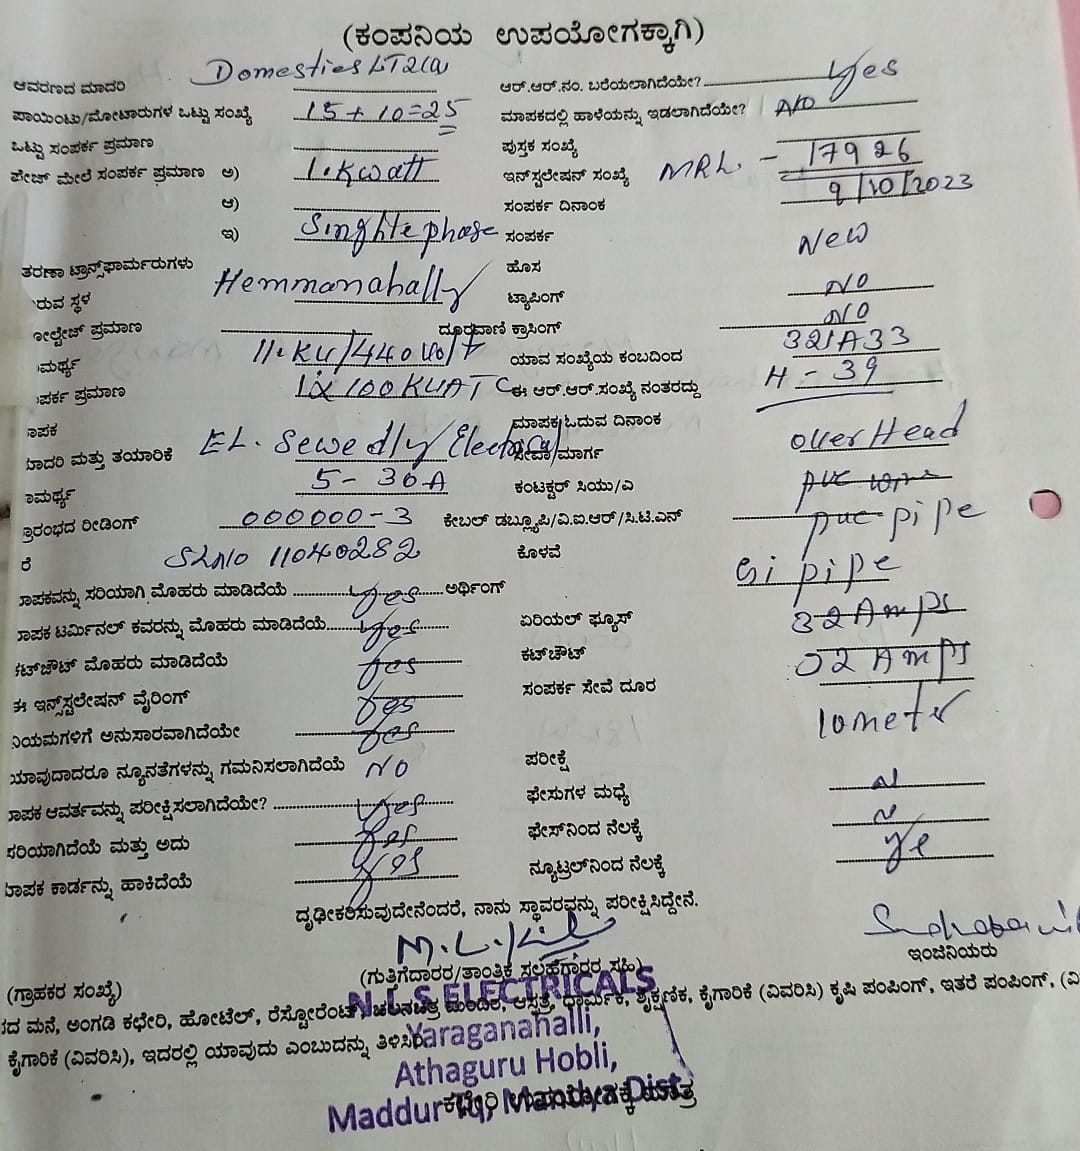 (ಕಂಪನಿಯ ಉಪಯೋಗಕ್ಕಾಗಿ)
ಆವರಣದ ಮಾದರಿ Domesties LT2(a) ಆರ್.ಆರ್.ನಂ. ಬರೆಯಲಾಗಿದೆಯೇ? Yes
ಪಾಯಿಂಟು/ಮೋಟಾರುಗಳ ಒಟ್ಟು ಸಂಖ್ಯೆ 15+10=25 ಮಾಪಕದಲ್ಲಿ ಹಾಳೆಯನ್ನು ಇಡಲಾಗಿದೆಯೇ? NO
ಒಟ್ಟು ಸಂಪರ್ಕ ಪ್ರಮಾಣ ಪುಸ್ತಕ ಸಂಖ್ಯೆ
ಪೇಜ್ ಮೇಲೆ ಸಂಪರ್ಕ ಪ್ರಮಾಣ ಅ) 1.Kwatt ಇನ್‌ಸ್ಟಲೇಷನ್ ಸಂಖ್ಯೆ MRL. - 17926
ಆ) ಸಂಪರ್ಕ ದಿನಾಂಕ 9/10/2023
ಇ) Singhte phase ಸಂಪರ್ಕ New
ತರಣಾ ಟ್ರಾನ್ಸ್‌ಫಾರ್ಮರುಗಳು ಹೊಸ
ಇರುವ ಸ್ಥಳ Hemmanahally ಟ್ಯಾಪಿಂಗ್ NO
ೋಲ್ಟೇಜ್ ಪ್ರಮಾಣ ದೂರವಾಣಿ ಕ್ರಾಸಿಂಗ್ NO
ಮರ್ಥ್ಯ 11.KV/440volt ಯಾವ ಸಂಖ್ಯೆಯ ಕಂಬದಿಂದ 321A33
ಪರ್ಕ ಪ್ರಮಾಣ 1x100KVA TC ಈ ಆರ್.ಆರ್.ಸಂಖ್ಯೆ ನಂತರದ್ದು H-39
ಾಪಕ ಮಾಪಕ ಓದುವ ದಿನಾಂಕ
ಮಾದರಿ ಮತ್ತು ತಯಾರಿಕೆ EL. Sewedly Electrical ಸೇವಾ ಮಾರ್ಗ overHead
ಾಮರ್ಥ್ಯ 5-30A ಕಂಟಕ್ಟರ್ ಸಿಯು/ಎ pvc wire
ಪ್ರಾರಂಭದ ರೀಡಿಂಗ್ 000000-3 ಕೇಬಲ್ ಡಬ್ಲ್ಯೂಪಿ/ವಿ.ಐ.ಆರ್/ಸಿ.ಟಿ.ಎಸ್ pvc pipe
ರೆ SLNO 11040282 ಕೊಳವೆ
ಮಾಪಕವನ್ನು ಸರಿಯಾಗಿ ಮೊಹರು ಮಾಡಿದೆಯೆ yes ಅರ್ಥಿಂಗ್ Gi pipe
ಮಾಪಕ ಟರ್ಮಿನಲ್ ಕವರನ್ನು ಮೊಹರು ಮಾಡಿದೆಯೆ yes ಏರಿಯಲ್ ಫ್ಯೂಸ್ 32Amps
ಕಟ್‌ಔಟ್ ಮೊಹರು ಮಾಡಿದೆಯೆ yes ಕಟ್‌ಔಟ್ 02 Amps
ಈ ಇನ್ಸ್‌ಸ್ಟಲೇಷನ್ ವೈರಿಂಗ್ yes ಸಂಪರ್ಕ ಸೇವೆ ದೂರ
ನಿಯಮಗಳಿಗೆ ಅನುಸಾರವಾಗಿದೆಯೇ yes 10meter
ಯಾವುದಾದರೂ ನ್ಯೂನತೆಗಳನ್ನು ಗಮನಿಸಲಾಗಿದೆಯೆ NO ಪರೀಕ್ಷೆ
ಮಾಪಕ ಆವರ್ತವನ್ನು ಪರೀಕ್ಷಿಸಲಾಗಿದೆಯೇ? yes ಫೇಸುಗಳ ಮಧ್ಯೆ N
ಸರಿಯಾಗಿದೆಯೆ ಮತ್ತು ಅದು yes ಫೇಸ್‌ನಿಂದ ನೆಲಕ್ಕೆ N
ಮಾಪಕ ಕಾರ್ಡನ್ನು ಹಾಕಿದೆಯೆ yes ನ್ಯೂಟ್ರಲ್‌ನಿಂದ ನೆಲಕ್ಕೆ ye
ದೃಢೀಕರಿಸುವುದೇನೆಂದರೆ, ನಾನು ಸ್ಥಾವರವನ್ನು ಪರೀಕ್ಷಿಸಿದ್ದೇನೆ.
ಇಂಜಿನಿಯರು
(ಗ್ರಾಹಕರ ಸಂಖ್ಯೆ) (ಗುತ್ತಿಗೆದಾರರ/ತಾಂತ್ರಿಕ ಸಲಹೆಗಾರರ ಸಹಿ)
N.L.S ELECTRICALS
ದ ಮನೆ, ಅಂಗಡಿ ಕಛೇರಿ, ಹೋಟೆಲ್, ರೆಸ್ಟೋರೆಂಟ್, ಚಲನಚಿತ್ರ ಮಂದಿರ, ಆಸ್ಪತ್ರೆ, ಧಾರ್ಮಿಕ, ಶೈಕ್ಷಣಿಕ, ಕೈಗಾರಿಕೆ (ವಿವರಿಸಿ) ಕೃಷಿ ಪಂಪಿಂಗ್, ಇತರೆ ಪಂಪಿಂಗ್,
Yaraganahalli,
ಕೈಗಾರಿಕೆ (ವಿವರಿಸಿ), ಇದರಲ್ಲಿ ಯಾವುದು ಎಂಬುದನ್ನು ತಿಳಿಸಿರಿ
Athaguru Hobli,
Maddur Tq, Mandya Dist
ಕಛೇರಿ ಉಪಯೋಗಕ್ಕೆ ಮಾತ್ರ